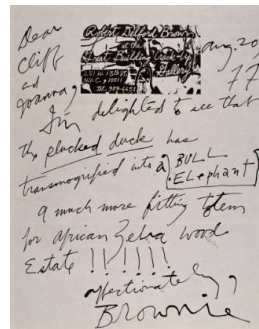 Dear
Cliff
ad
Joanna,
Robert Delford Brown
at the
Great Building Crack-Up
Gallery
251 W. 13th St
N.Y.C. 10011
Tel. 989-6651
Aug. 20
77
I'm delighted to see that
the plucked duck has
transmogrified into a BULL
ELephant
a much more fitting totem
for african Zebra wood
Estate !!!!!!
affectionately,
Brownie